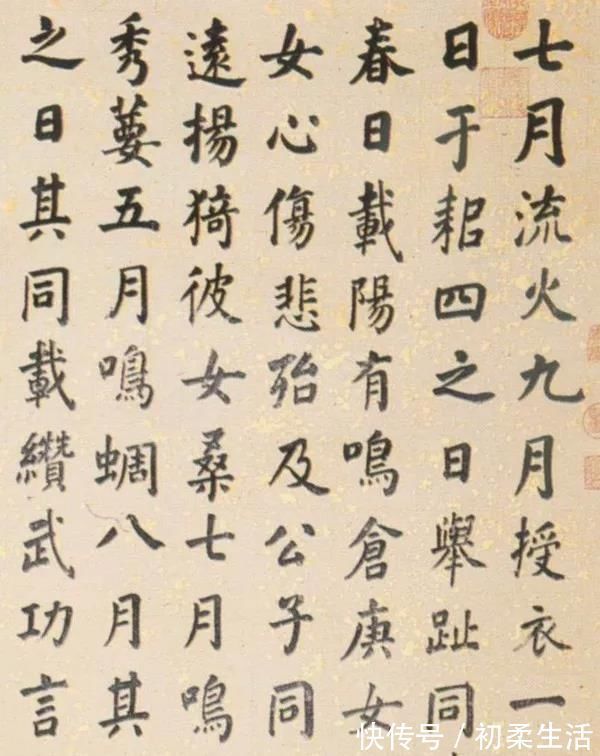 七月流火九月授衣一
日于耜四之日舉趾同
春日載陽有鳴倉庚女
女心傷悲殆及公子同
遠揚猗彼女桑七月鳴
秀葽五月鳴蜩八月其
之日其同載纘武功言
快传号 / 初柔生活